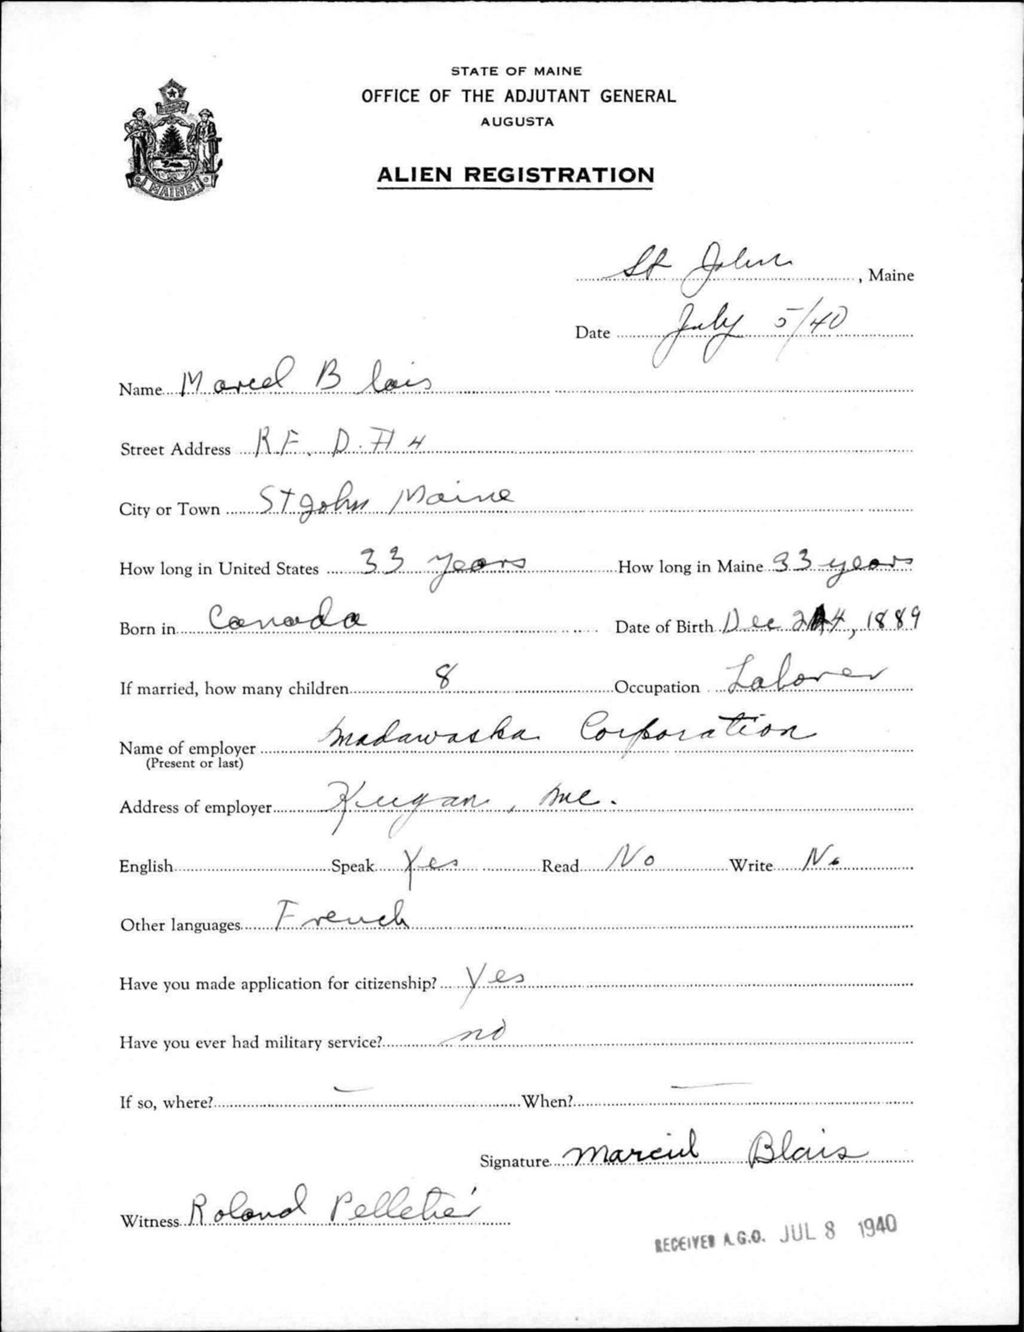 STATE OF MAINE
OFFICE OF THE ADJUTANT GENERAL
AUGUSTA
MAINE
ALIEN REGISTRATION
St John, Maine
Date July 5/40
Name Marcel Blais
Street Address R.F.D. #4
City or Town St John Maine
How long in United States 33 years How long in Maine 33 years
Born in Canada Date of Birth Dec 24, 1889
If married, how many children 8 Occupation Laborer
Name of employer Madawaska Corporation
(Present or last)
Address of employer Keegan, Me.
English Speak Yes Read No Write No
Other languages French
Have you made application for citizenship? Yes
Have you ever had military service? no
If so, where? — When? —
Signature Blais
Witness Roland Pelletier
RECEIVED A.G.O. JUL 8 1940